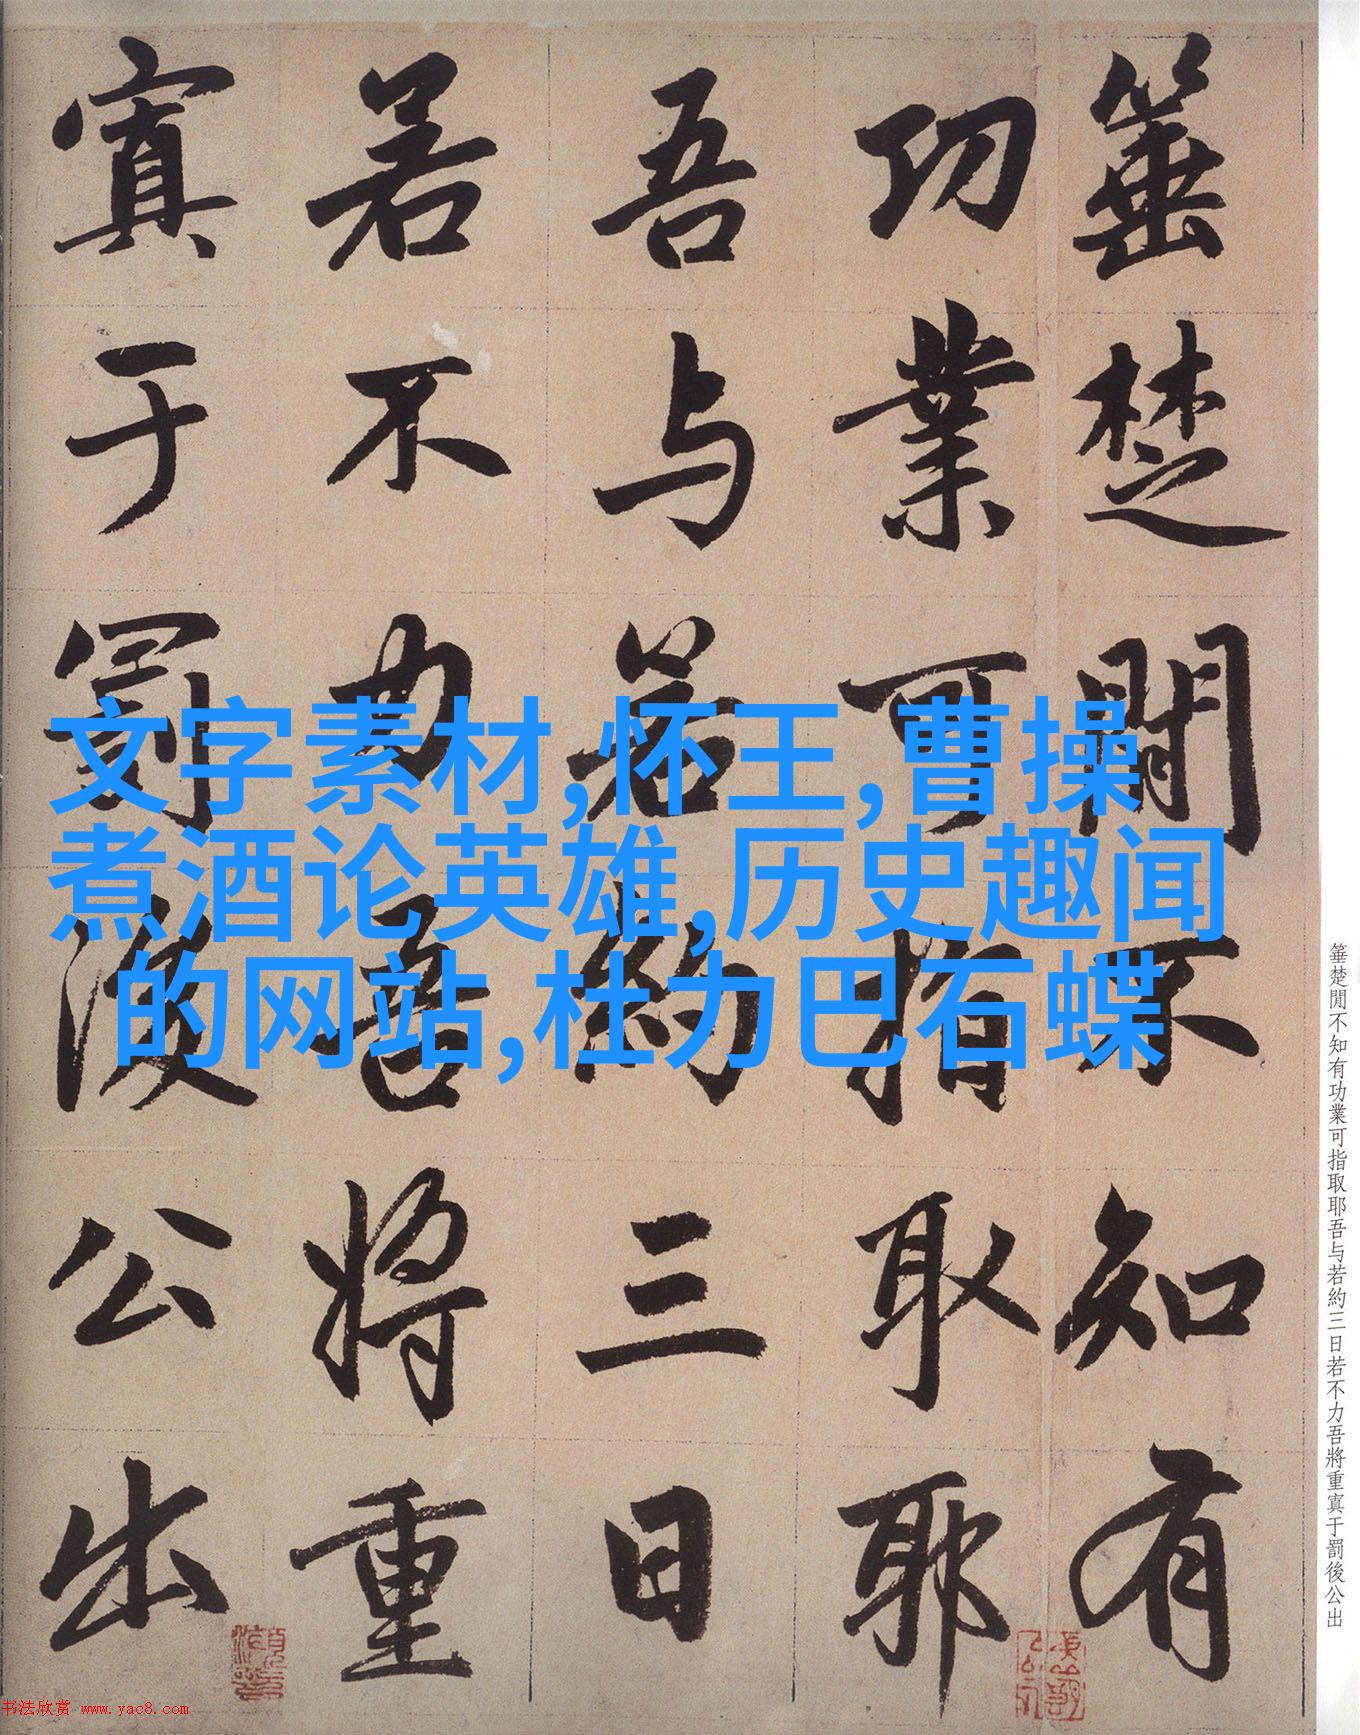 箠楚閒不知有
功業可指取耶
吾与若約三日
若不力吾將重
寘于罰後公出
文字素材,怀王,曹操
煮酒论英雄,历史趣闻
的网站,杜力巴石蝶
箠楚閒不知有功業可指取耶吾与若約三日若不力吾將重寘于罰後公出
书法欣赏 www.yac8.com